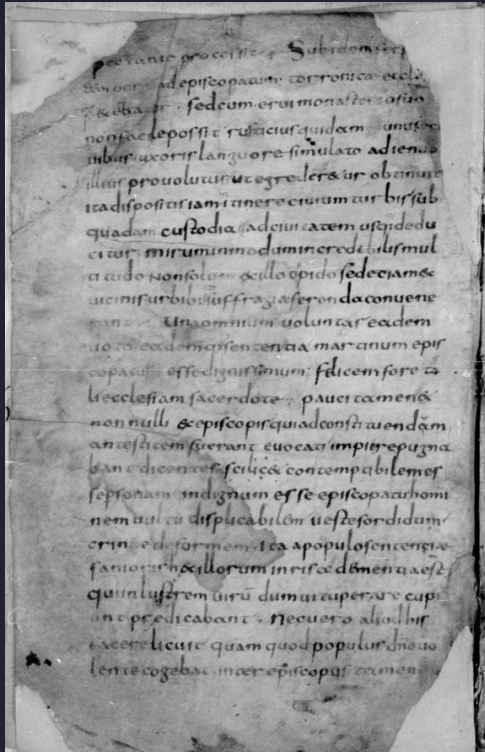 peccante processit Subidem fere
tempus ad episcopatum toronicae eccle
petebatur sed cum erui monasterio suo
non facile possit rusticius quidam unus e
uibus uxoris languore simulato ad genua
illius prouolutus ut egrederetur obtinuit
ita dispositis iam itinere ciuium turbis sub
quadam custodia ad ciuitatem usq; dedu
citur mirum in modum incredibilis mul
titudo non solum ex illo opido sed etiam ex
uicinis urbib; suffragia ferenda conuene
rant Una omnium uoluntas eadem
uota eadem q; sententia martinum epis
copatus esse dignissimum felicem fore ta
li ecclesiam sacerdote pauci tamen &
nonnulli & episcopis qui ad constituendam
antestitem fuerant euocati impie repugna
bant dicentes scilic& contemptibilem es
se personam indignum esse episcopatu homi
nem uultu displicabilem ueste sordidum
crine deformem Ita a populo sententiae
sanioris haec illorum inrisa dementia est
qui inlustrem uirum dum uituperare cupi
unt predicabant Nec uero aliud his
facere licuit quam quod populus dno uo
lente cogebat inter episcopus tamen